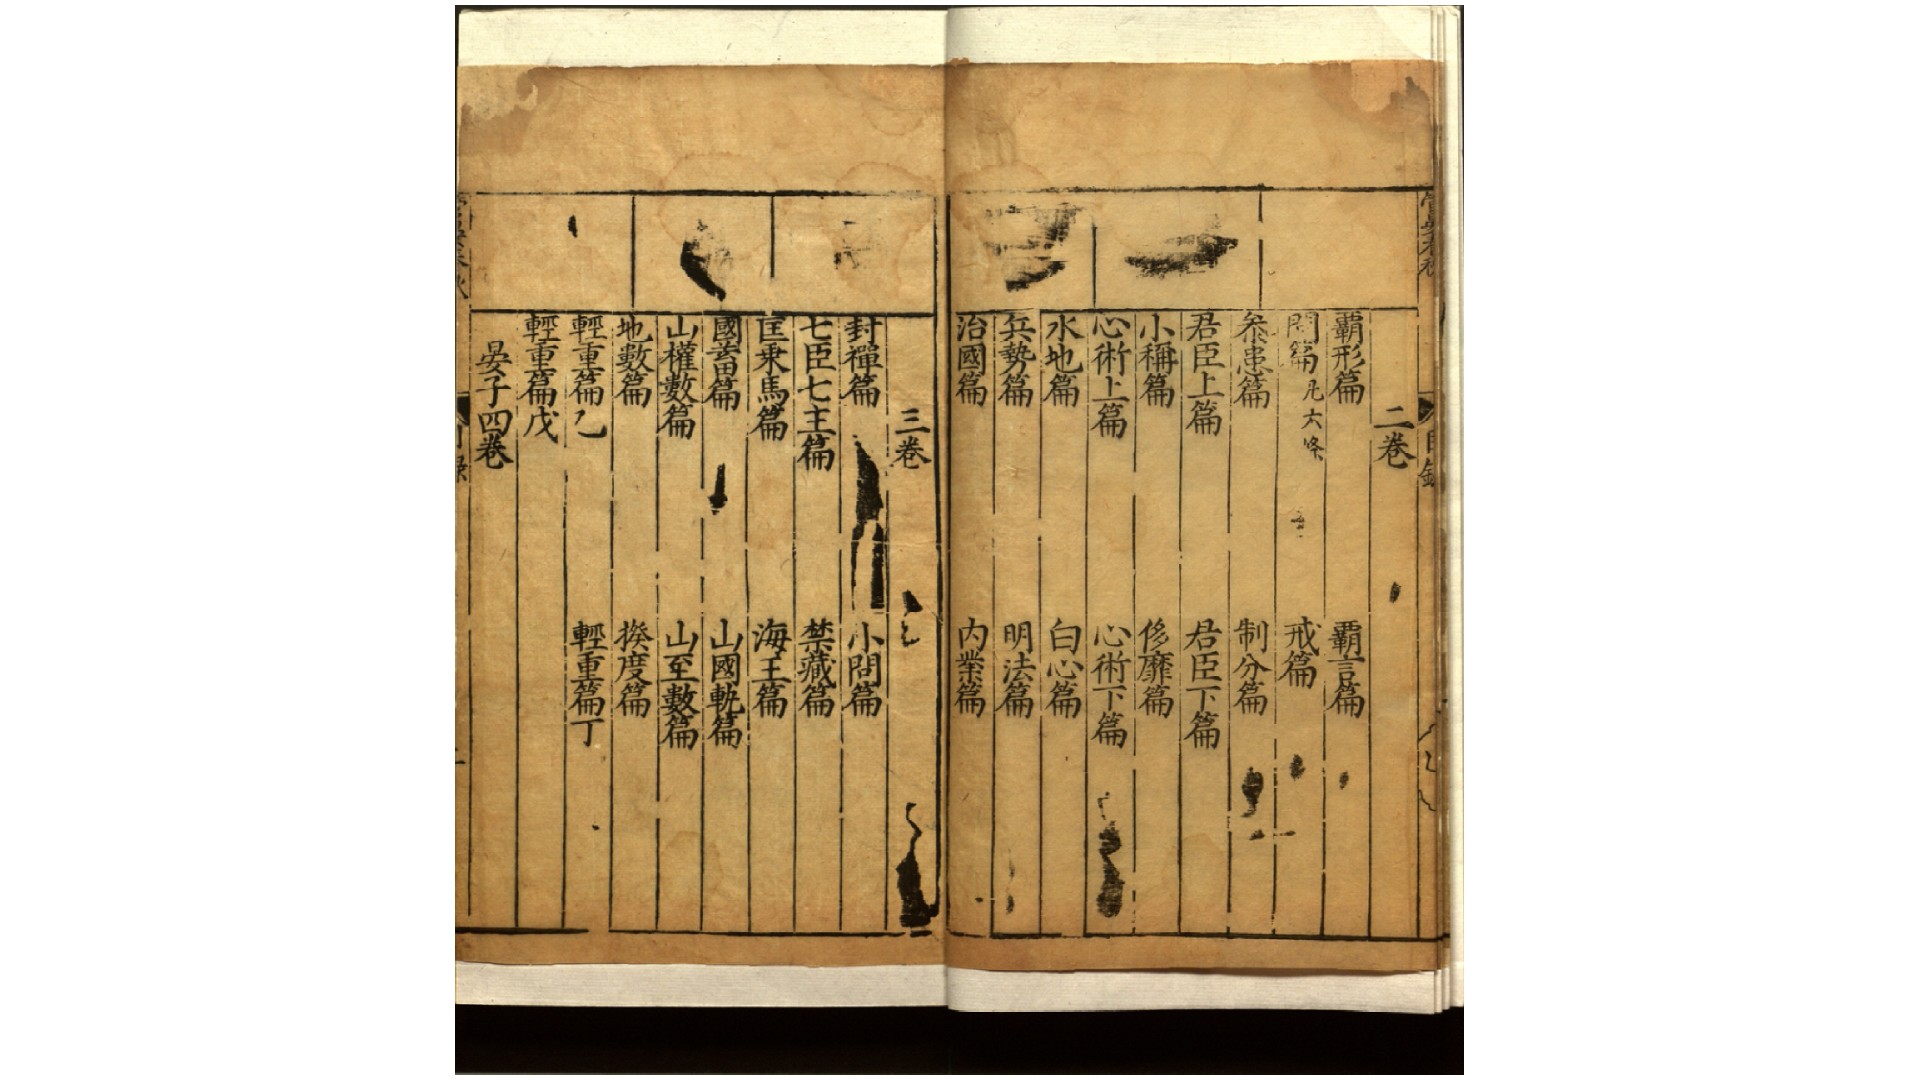 二卷
覇形篇 覇言篇
問篇 凡六條 戒篇
叅患篇 制分篇
君臣上篇 君臣下篇
小稱篇 侈靡篇
心術上篇 心術下篇
水地篇 白心篇
兵勢篇 明法篇
治國篇 内業篇
三卷
封禪篇 小問篇
七臣七主篇 禁藏篇
匡乘馬篇 海王篇
國畜篇 山國軌篇
山權數篇 山至數篇
地數篇 揆度篇
輕重篇乙 輕重篇丁
輕重篇戊
晏子四卷